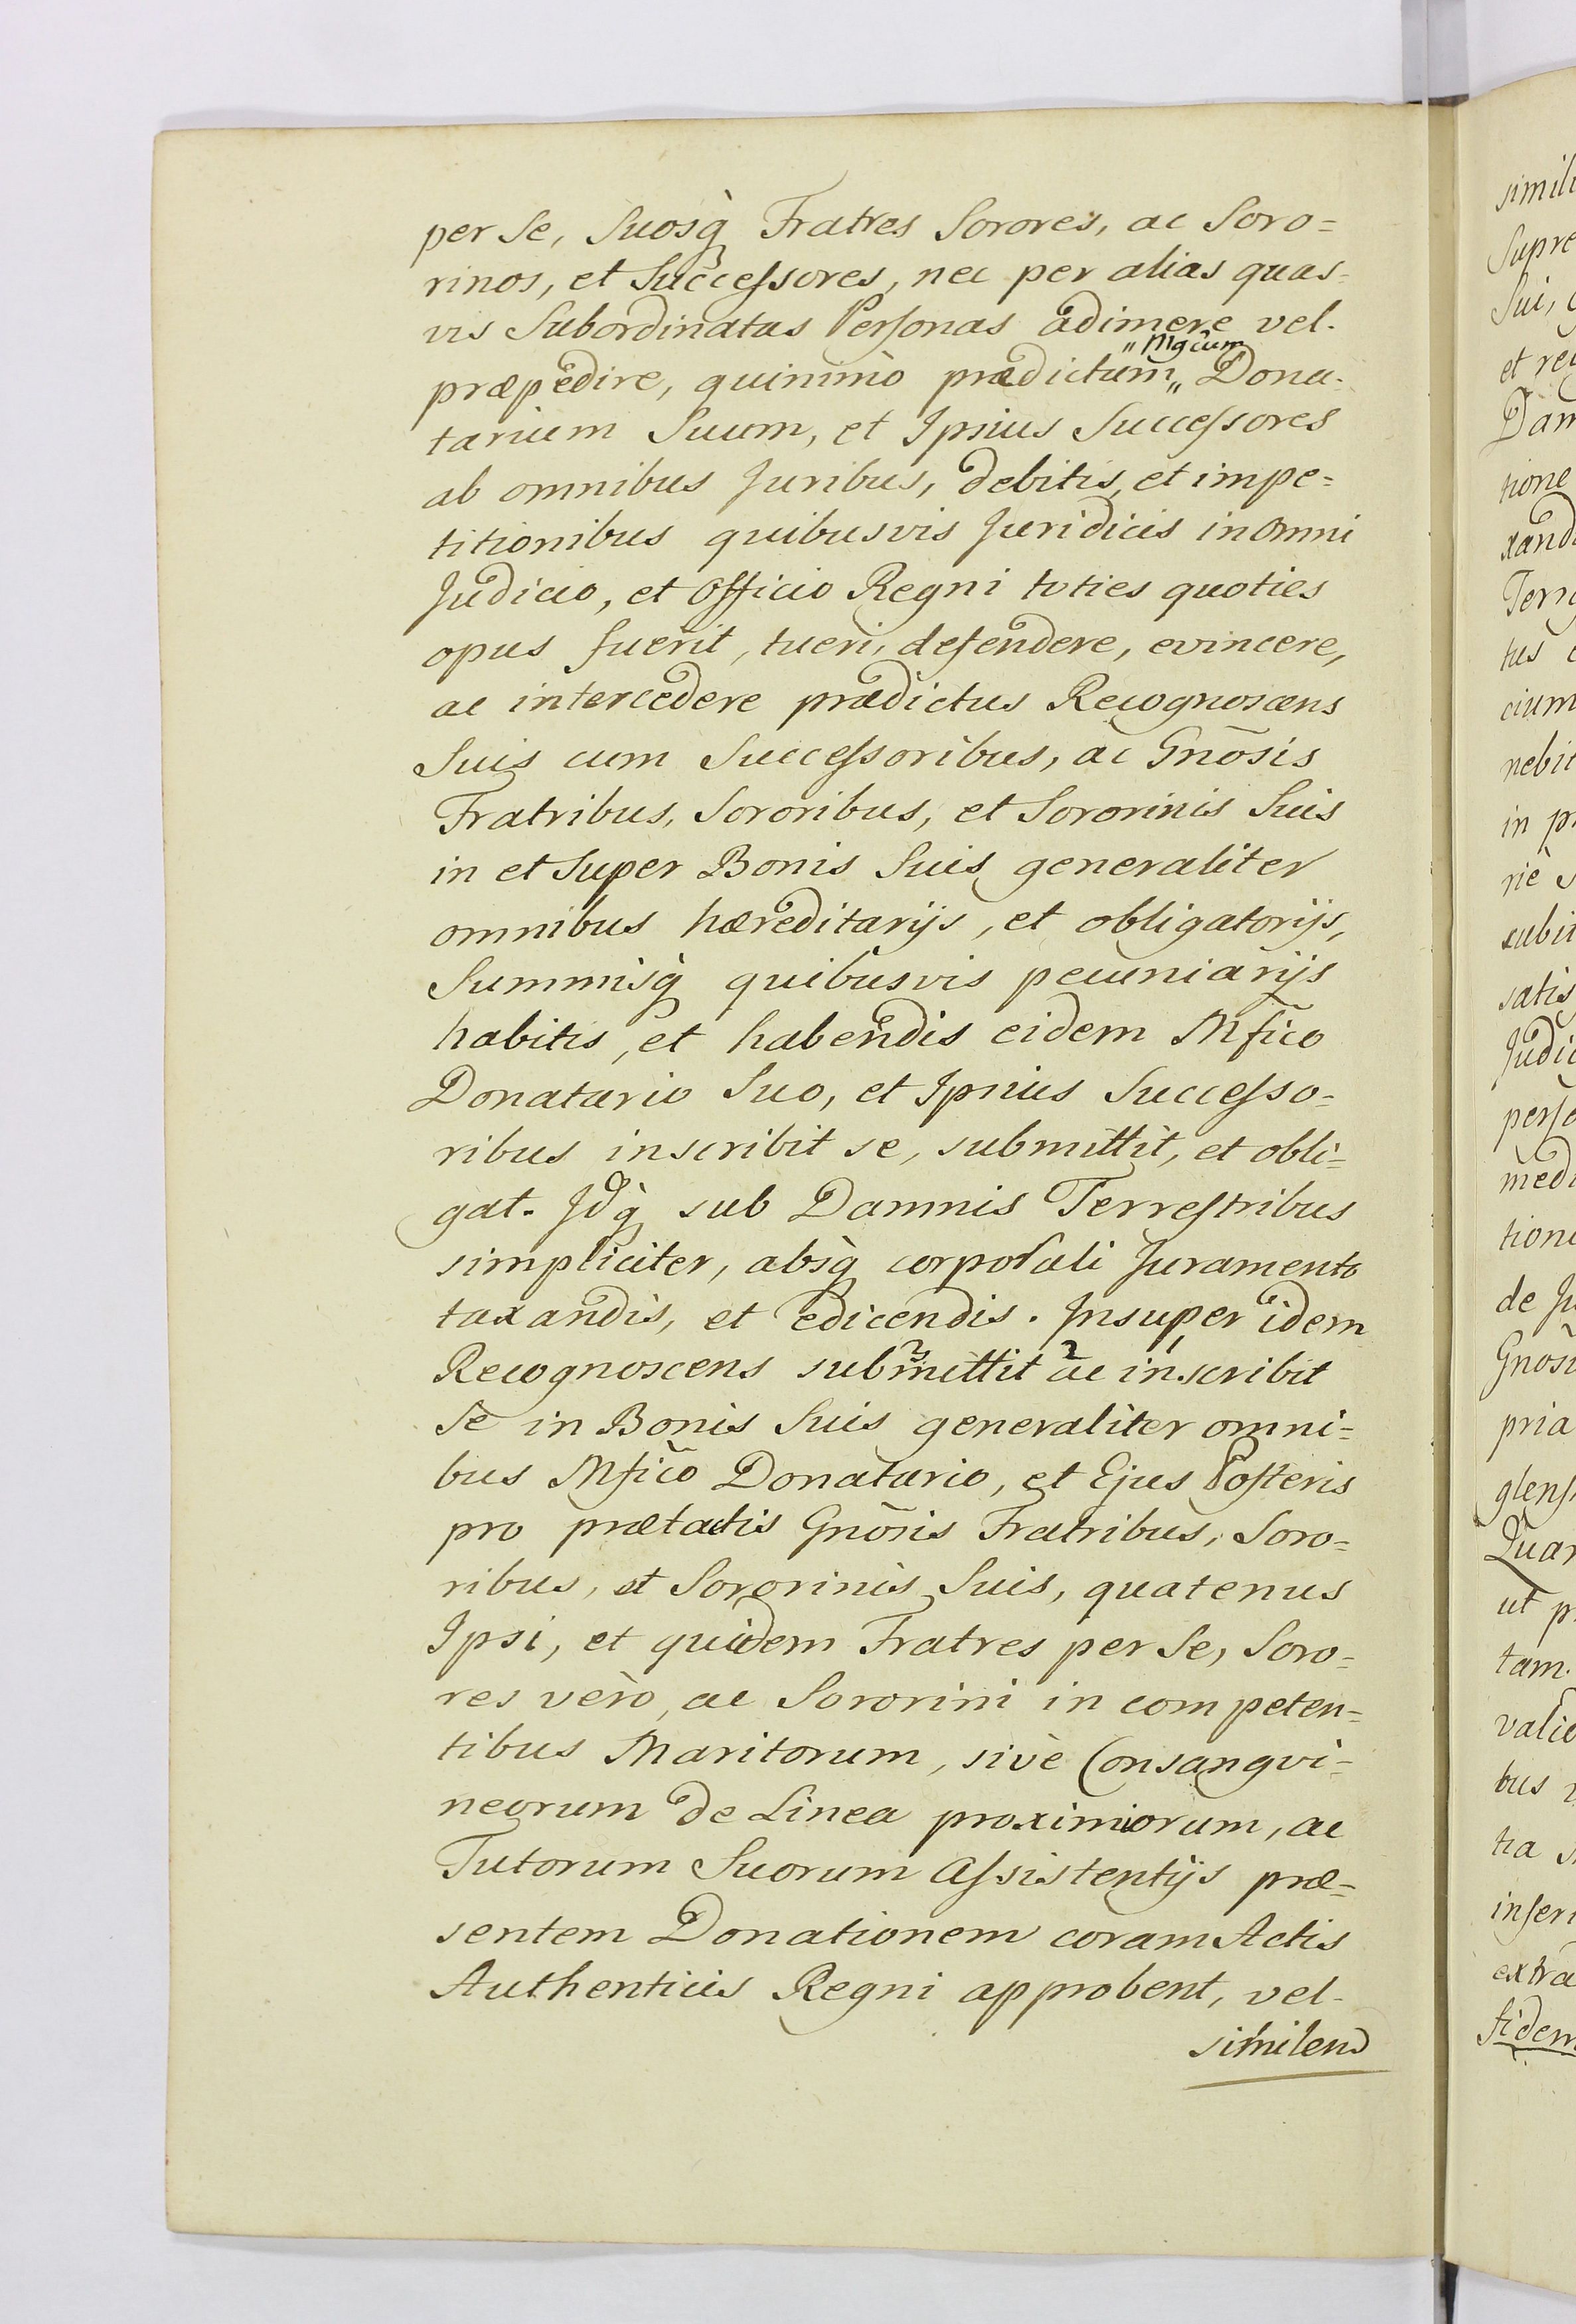 per Se, Suosq̀ Fratres Sorores, ac Soro=
rinos, et Successores, nec per alias quas=
vis Subordinatas Personas adimere vel.
præpedire, quinimò prædictum „ Mgcum „ Dona-
tarium Suum, et Ipsius Successores
ab omnibus Juribus, debitis, et impe=
titionibus quibusvis Juridicis in omni
Judicio, et Officio Regni toties quoties
opus fuerit, tueri, defendere, evincere,
ac intercedere prædictus Recognoscens
Suis cum Successoribus, ac Gnõsis
Fratribus, Sororibus, et Sororinis Suis
in et Super Bonis Suis generaliter
omnibus hæreditarijs, et obligatorijs,
Summisq̀ quibusvis pecuniarijs
habitis, et habendis eidem Mfico
Donatario Suo, et Ipsius Successo=
ribus inscribit se, submittit, et obli=
gat. Jdq̀ sub Damnis Terrestribus
simpliciter, absq̀ corporali Juramento
taxandis, et edicendis. Insuper idem
Recognoscens submittit ac inscribit
Se in Bonis Suis generaliter omni=
bus Mfico Donatario, et Ejus Posteris
pro prætactis Gnõsis Fratribus, Soro=
ribus, et Sororinis Suis, quatenus
Ipsi, et quidem Fratres per Se, Soro=
res verò, ac Sororini in competen=
tibus Maritorum, sivè Consangvi=
neorum de Linea proximiorum, ac
Tutorum Suorum Assistentijs præ=
sentem Donationem coram Actis
Authenticis Regni approbent, vel-
similem
simili
Supre
Sui,
et re
Dam
tione
xand
Terr
tus
cium
nebit
in p
riè
subi
satis
Judi
perso
medi
tion
de Ju
Gnõsi
pria
glens
Quar
ut p
tam.
valid
bus
tia
inseri
extra
fidem